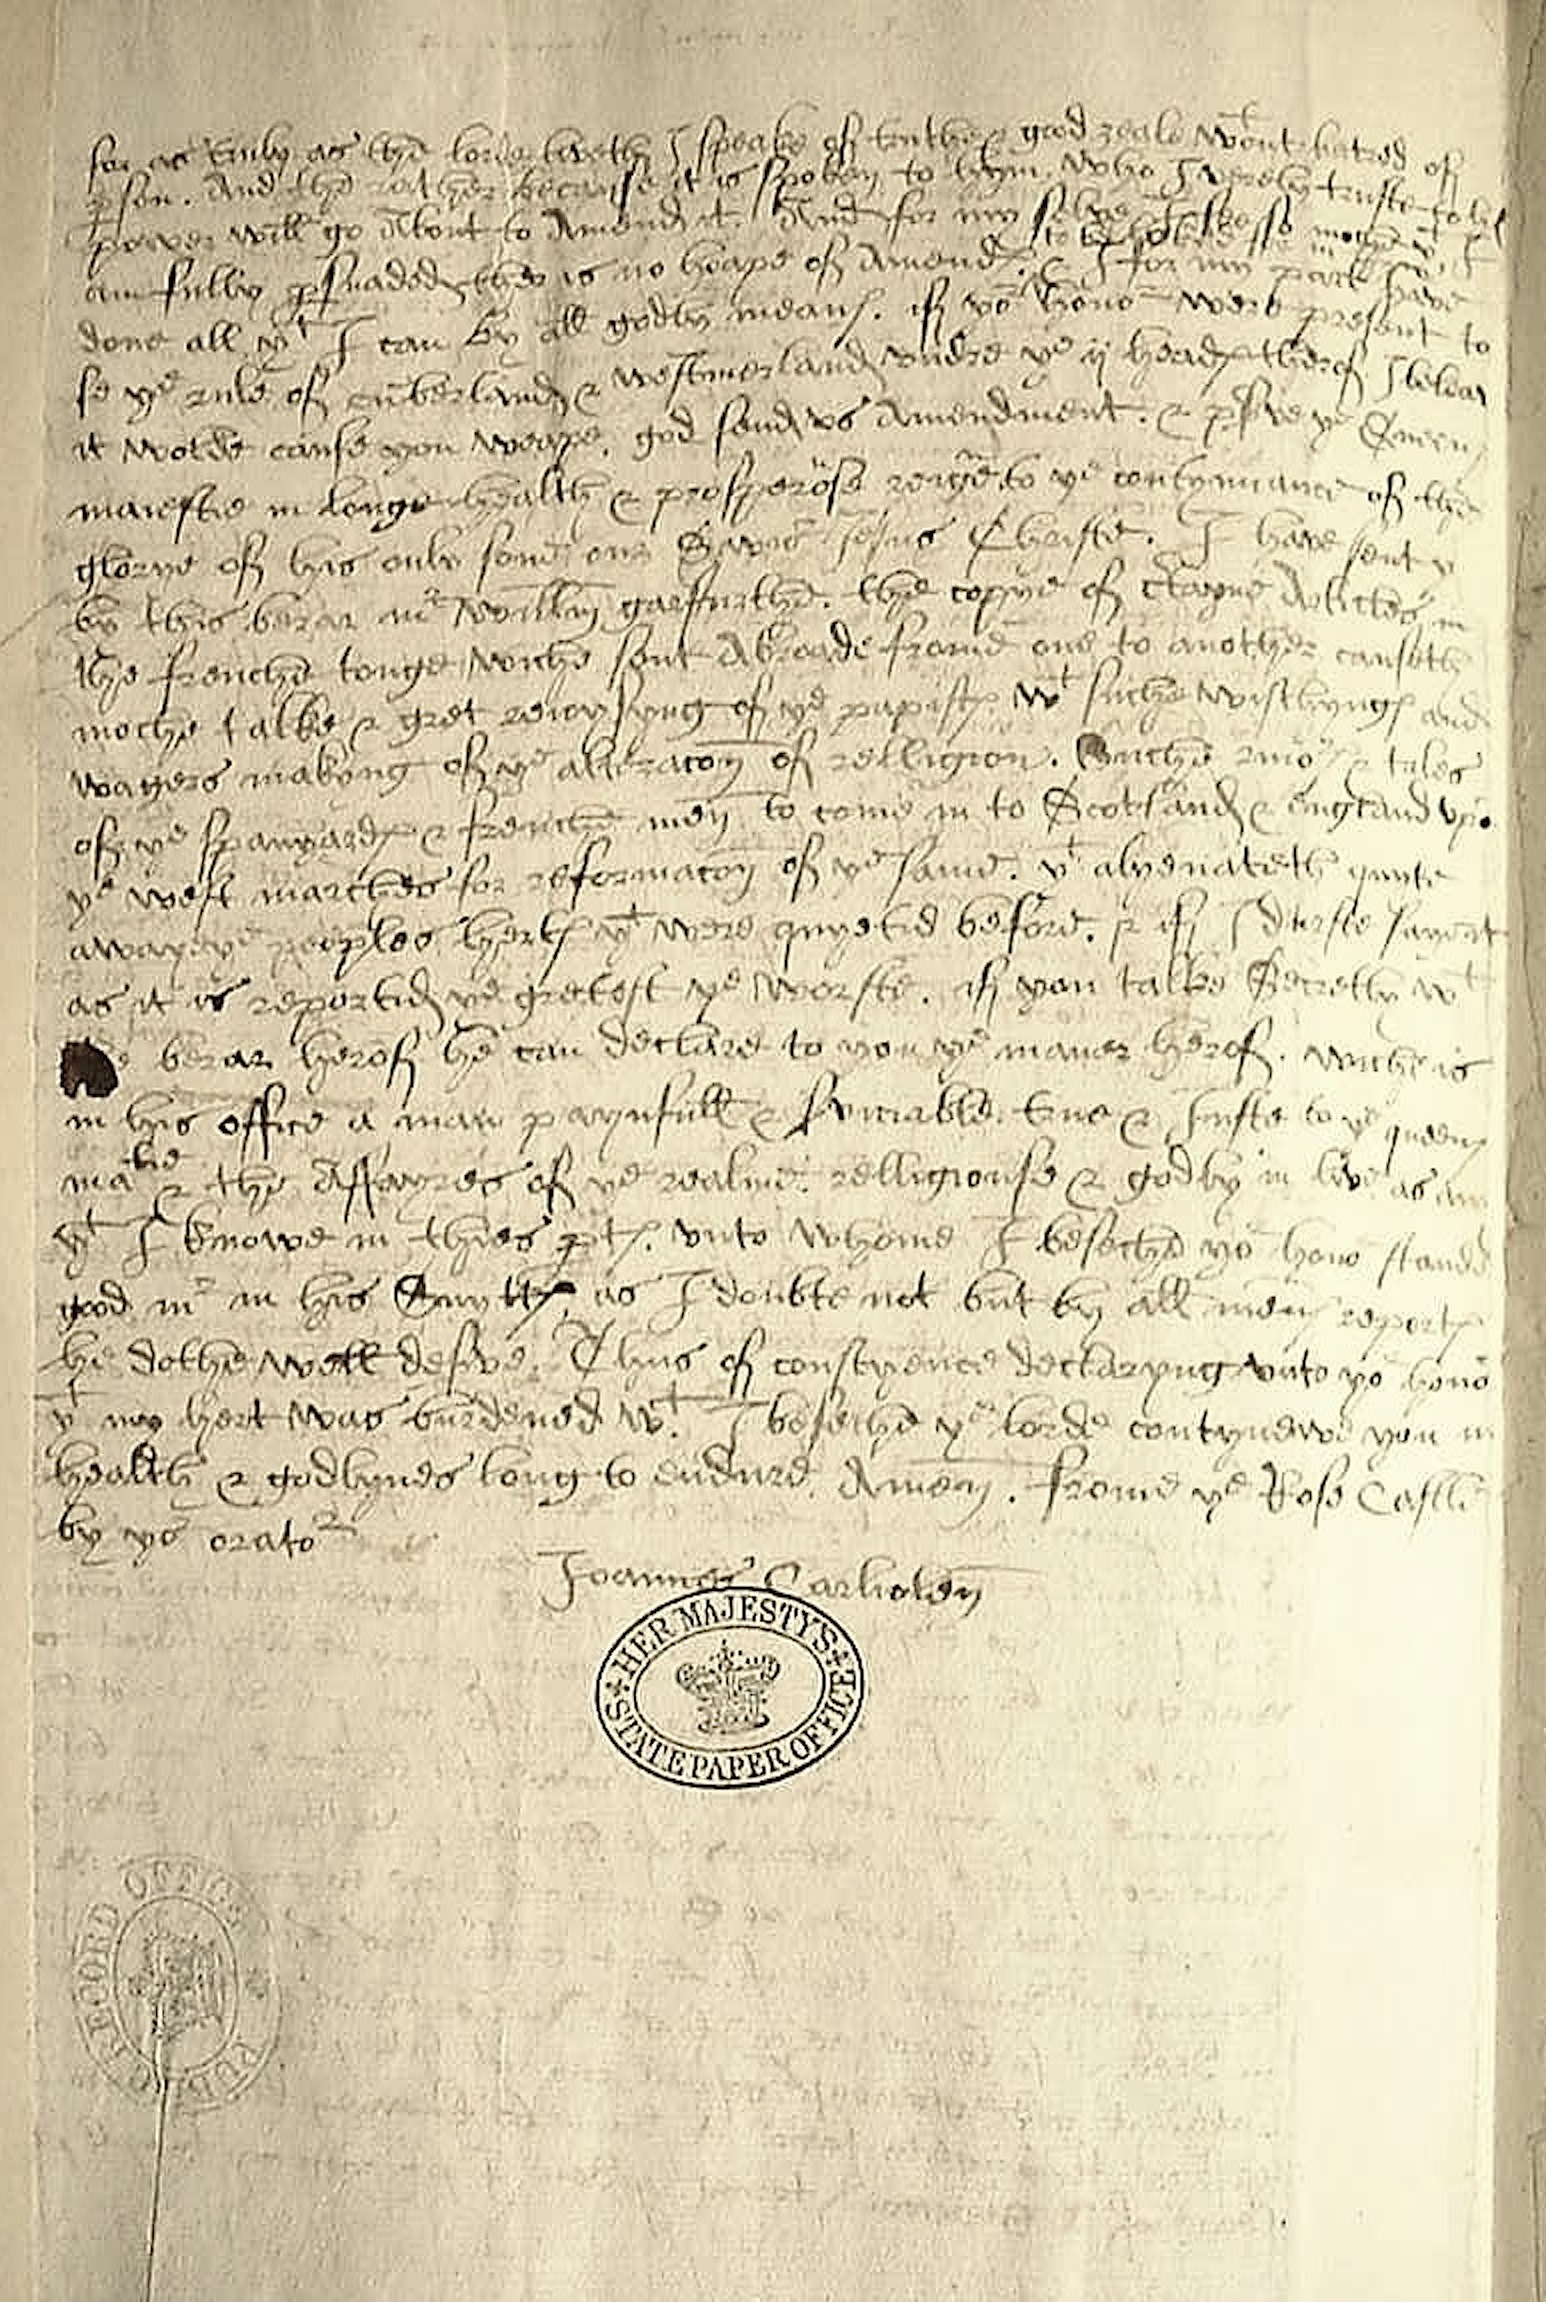 for as truly as the lorde liveth I speake of truthe & good zeale wtout hatred of
pson. And the rather because it is spoken to hym who I verely truste to his
power will go About to Amend it. And for my selve I speke so moche yt I
am fully psuaded ther is no hoape of Amend & I for my part have
done all yt I can by all godly means. if yor honor were present to
se ye rule of cuberland & westmerland undre ye ij heads therof I belev
it wolde cause you weape. god send us Amendment. & pserve ye Quens
maiestie in longe health & prosperose reigne to ye contynuance of the
glorye of his only sone our Savior Jesus Christe. I have sent
by this berar mr William the coppye of Articles in
the frenche tonge wiche sent Abroade frome one to another causeth
moche talke & gret reioysyng of ye papists wt suche wisthyngs and
wagers makyng of ye alteracon of relligion. Suche rumors & tales
of ye spanyards & frenche men to come in to Scotland & england upo
ye west marches for reformacon of ye same. yt alyenateth quyte
awaye ye peoples herts yt were quyetid before. & if I durste saye it
as it is reportid ye gretest ye worste. if you talke Secretly wt
e berar herof he can declare to you ye maner herof. wiche is
in his office a man paynfull & servicable. true & Juste to ye quens
matie & the Affayres of ye realme. relligiouse & godly in live as any
yt I knowe in thies pts. unto whome I beseche yor honor stand
good mr in his Suytts, as I doubte not but by all mens reports
he dothe well deserve. Thus of conscyence declaryng unto yor honor
yt my hert was burdened wt. I beseche ye lorde contynewe you in
health & godlynes long to endure. Amen. frome ye Rose Castle
by yor orator
Joannes Carliolen
HER MAJESTY'S STATE PAPER OFFICE
PUBLIC RECORD OFFICE